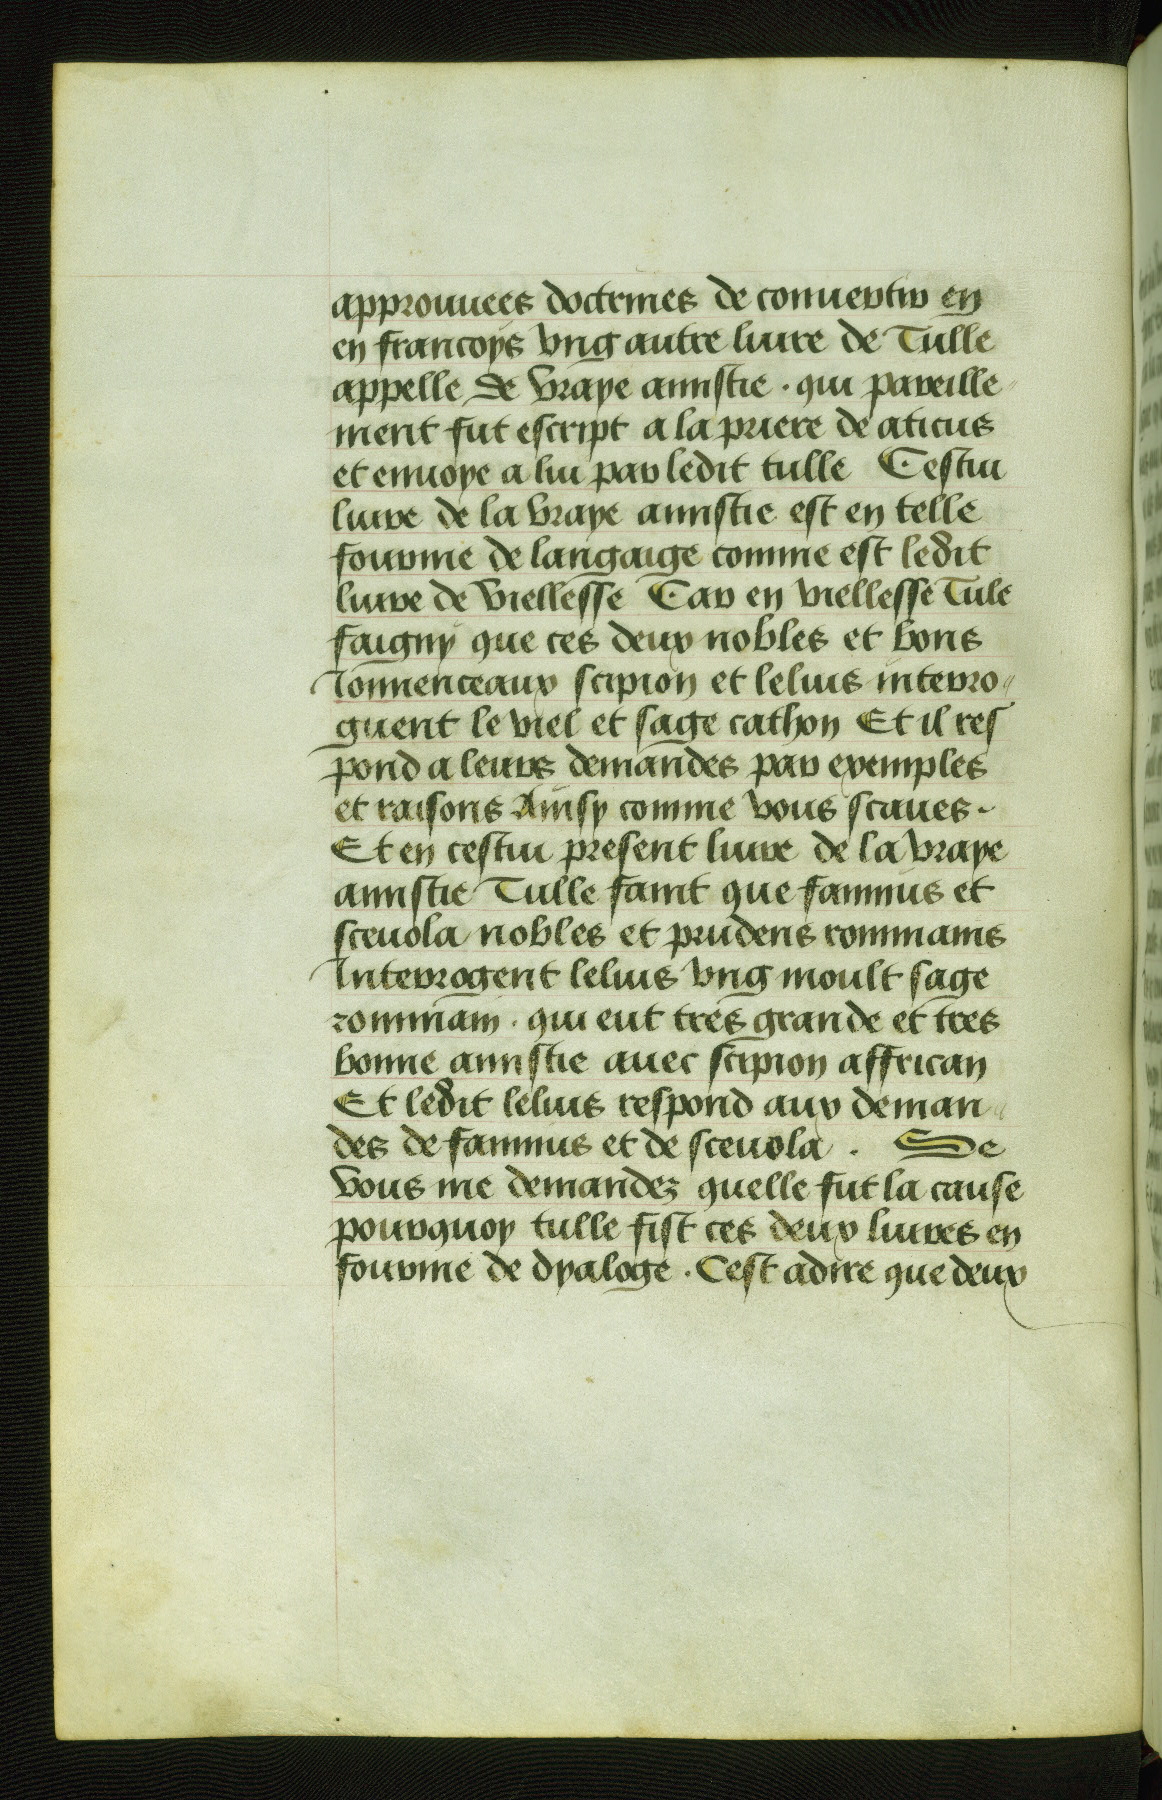 approuuees doctrines de conuertir en
en francoys vng autre liure de Tulle
appelle De vraye amistie · qui pareille
ment fut escript a la priere de aticus
et enuoye a lui par ledit tulle Cestui
liure de la vraye amistie est en telle
fourme de langaige comme est ledit
liure de viellesse Car en viellesse Tule
faigny que ces deux nobles et bons
Jonnenceaux scipion et lelius interro
guent le viel et sage cathon Et il res
pond a leurs demandes par exemples
et raisons Ainsy comme vous scaues ~
Et en cestui present liure de la vraye
amistie Tulle faint que fannius et
sceuola nobles et prudens rommains
Interrogent lelius vng moult sage
rommain · qui eut tres grande et tres
bonne amistie auec scipion affrican
Et ledit lelius respond aux deman
des de fannius et de sceuola . Se
vous me demandez quelle fut la cause
pourquoy tulle fist ces deux liures en
fourme de dyaloge . Cest adire que deux